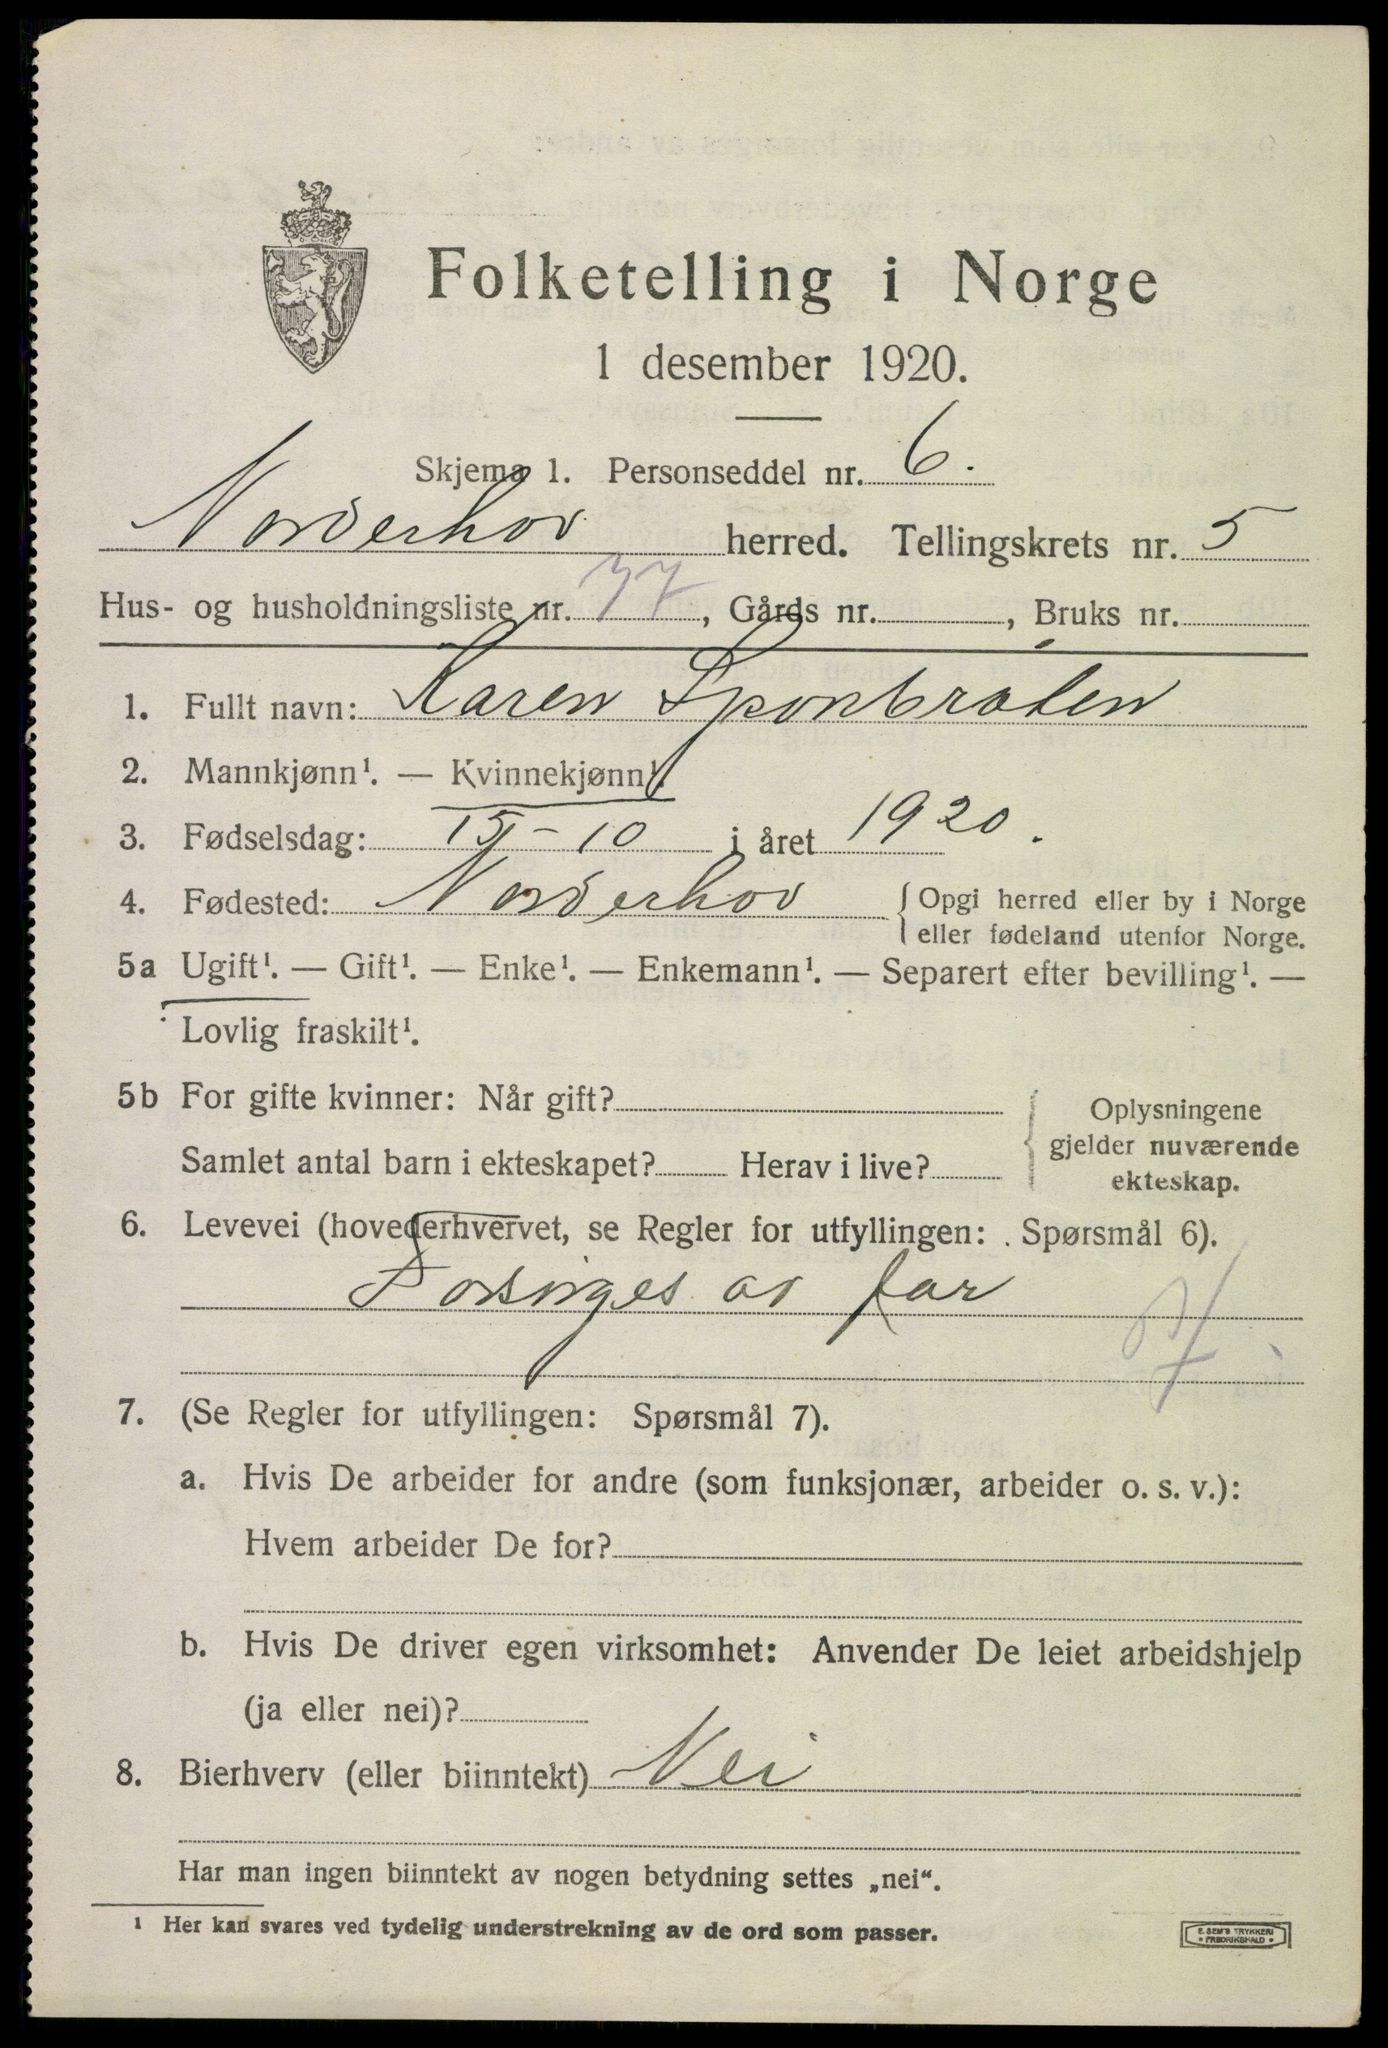 Folketelling i Norge
1 desember 1920.
Skjema 1. Personseddel nr. 6.
Norderhov herred. Tellingskrets nr. 5
Hus- og husholdningsliste nr. 77, Gårds nr. , Bruks nr.
1. Fullt navn: Karen Sponbråten
2. Mannkjønn¹. — Kvinnekjønn¹.
3. Fødselsdag: 15-10 i året 1920.
4. Fødested: Norderhov { Opgi herred eller by i Norge
eller fødeland utenfor Norge.
5a Ugift¹. — Gift¹. — Enke¹. — Enkemann¹. — Separert efter bevilling¹. —
Lovlig fraskilt¹.
5b For gifte kvinner: Når gift?
Samlet antal barn i ekteskapet? Herav i live?
{ Oplysningene
gjelder nuværende
ekteskap.
6. Levevei (hovederhvervet, se Regler for utfyllingen: Spørsmål 6).
Forsørges av far
7. (Se Regler for utfyllingen: Spørsmål 7).
a. Hvis De arbeider for andre (som funksjonær, arbeider o. s. v.):
Hvem arbeider De for?
b. Hvis De driver egen virksomhet: Anvender De leiet arbeidshjelp
(ja eller nei)?
8. Bierhverv (eller biinntekt) Nei
Har man ingen biinntekt av nogen betydning settes „nei“.
¹ Her kan svares ved tydelig understrekning av de ord som passer.
E. SEM'S TRYKKERI
• FREDRIKSHALD •